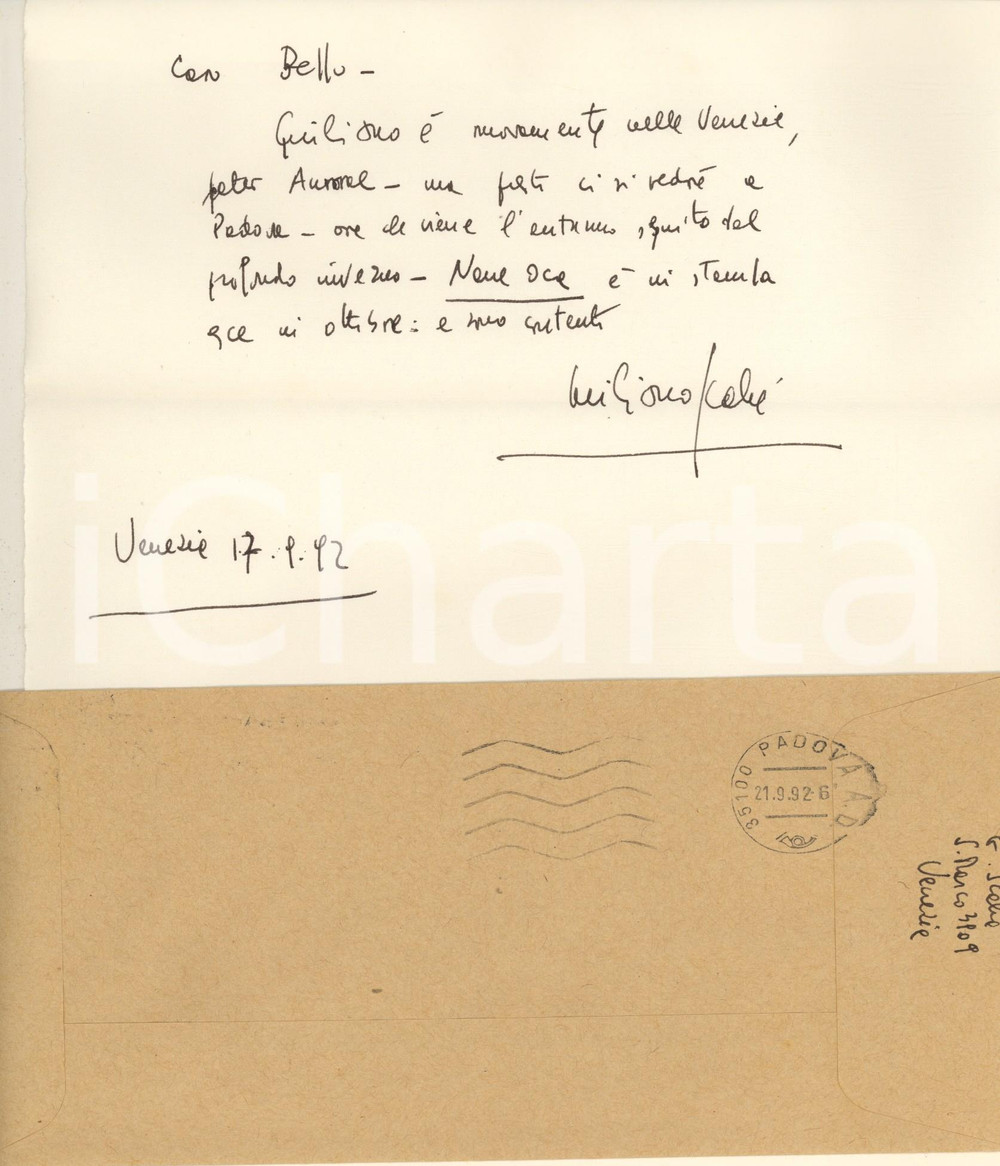 Caro Bello –
Giuliano è nuovamente nelle Venezie,
peter Aurorel – ma presto ci si vedrà a
Padova – ora che viene l'autunno, seguito dal
profondo inverno – Nane Oca è in stampa
esce in ottobre: e sono contento
Giuliano Scabia
Venezia 17.9.92
iCharta
PADOVA A.D.
35100
21.9.92-6
G. Scabia
S. Marco 3909
Venezia